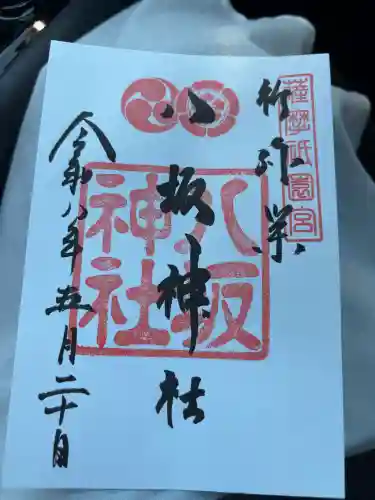 薩摩祇園宮
祈弥栄
八坂神社
八坂神社
令和八年五月二十日